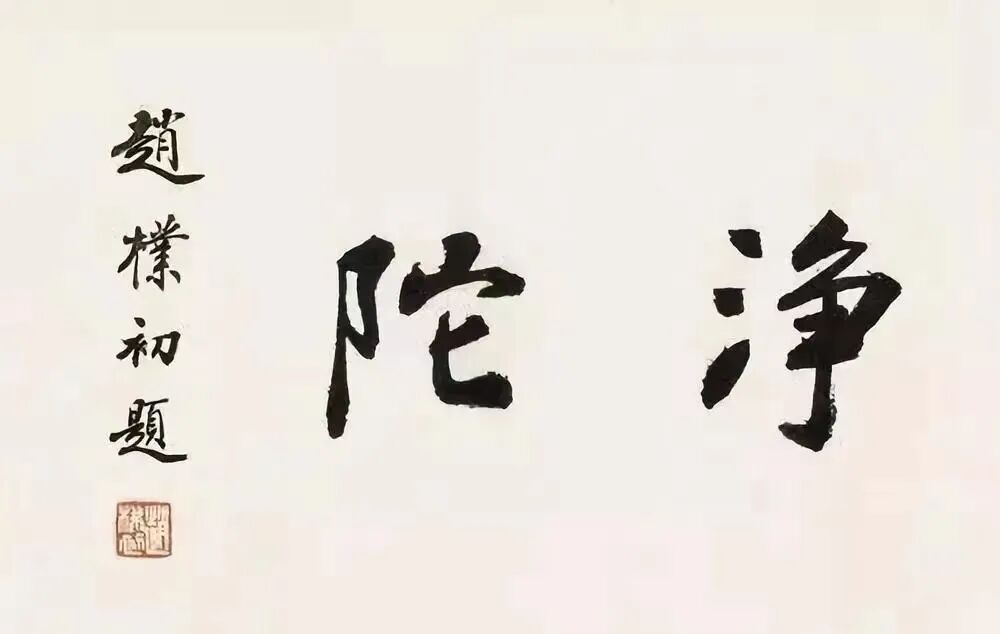 净陀
趙樸初題